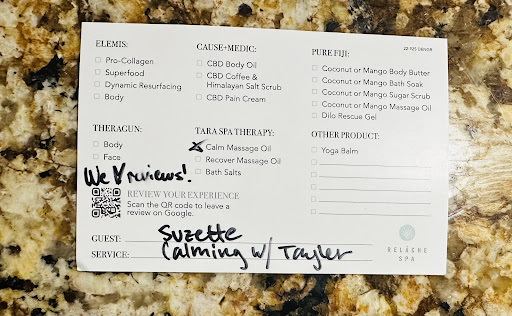 22-925 GENOR
ELEMIS:
Pro-Collagen
Superfood
Dynamic Resurfacing
Body
CAUSE+MEDIC:
CBD Body Oil
CBD Coffee &
Himalayan Salt Scrub
CBD Pain Cream
PURE FIJI:
Coconut or Mango Body Butter
Coconut or Mango Bath Soak
Coconut or Mango Sugar Scrub
Coconut or Mango Massage Oil
Dilo Rescue Gel
THERAGUN:
Body
Face
TARA SPA THERAPY:
Calm Massage Oil
Recover Massage Oil
Bath Salts
OTHER PRODUCT:
Yoga Balm
We ♥ reviews!
REVIEW YOUR EXPERIENCE
Scan the QR code to leave a
review on Google.
GUEST: Suzette
SERVICE: Calming w/ Tayler
RELÂCHE
SPA